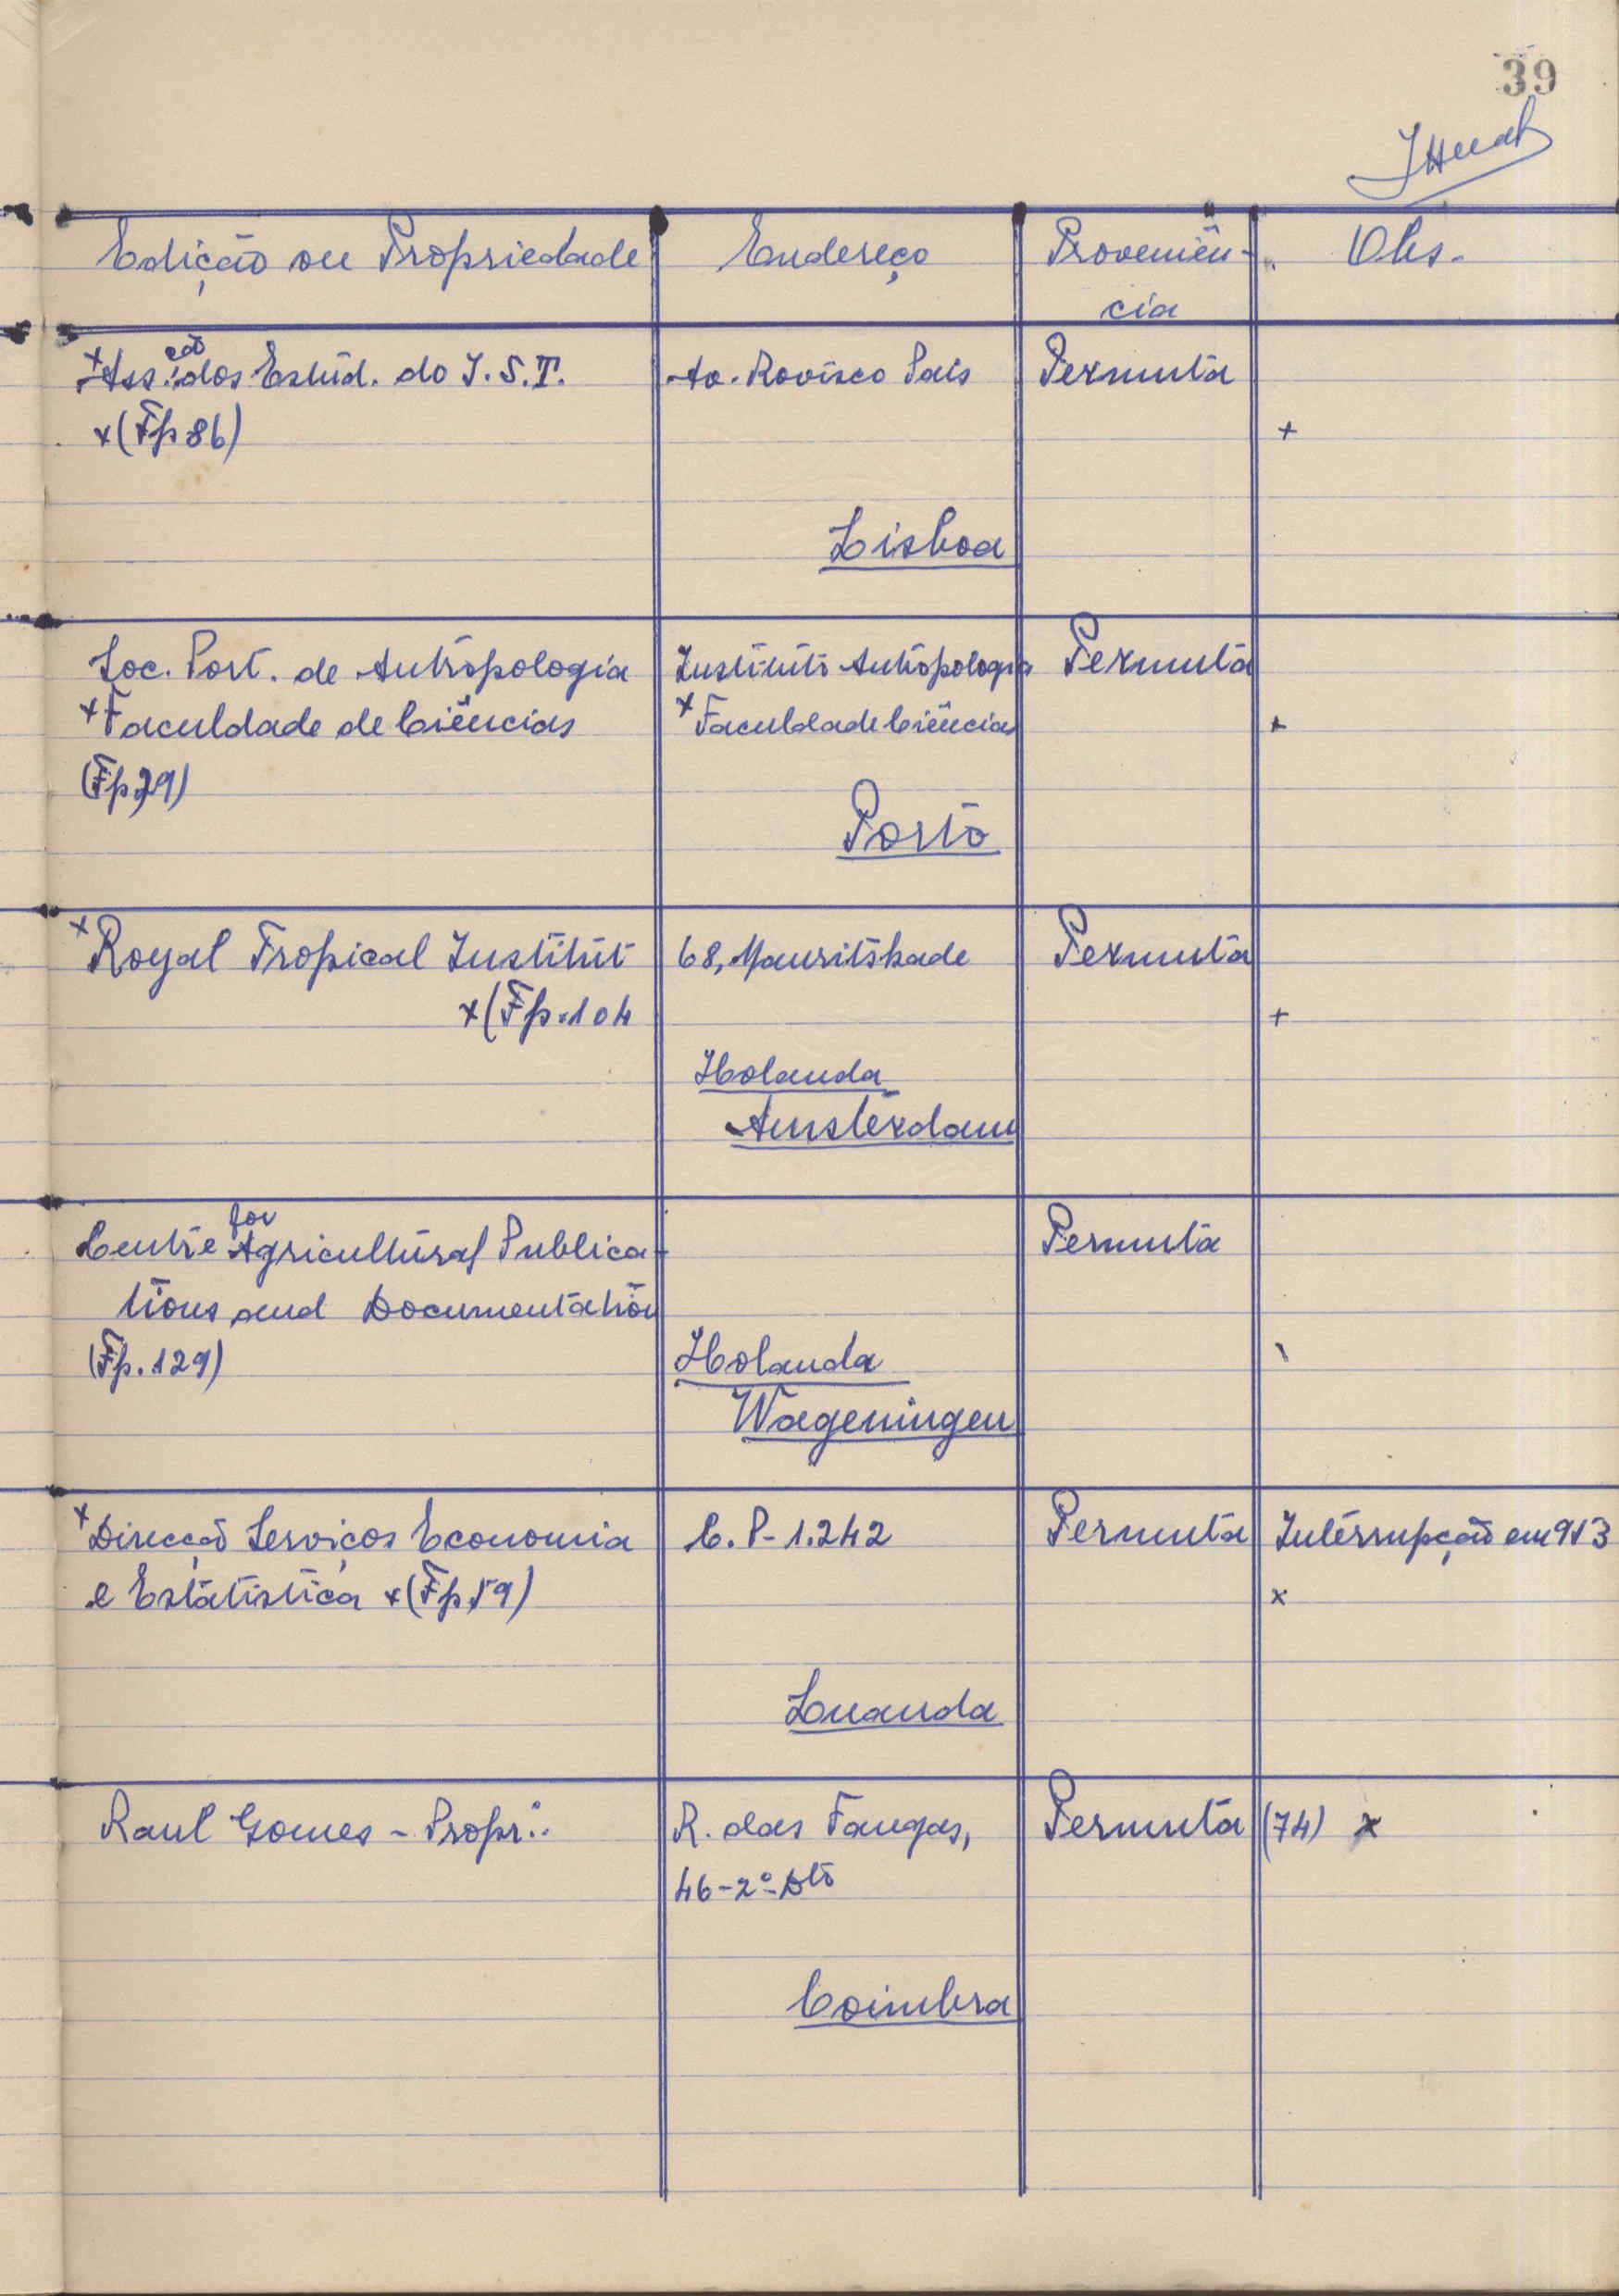 39
Edição ou Propriedade Endereço Proveniên- Obs.
cia
x Ass.ção dos Estud. do I.S.T. Av. Rovisco Pais Permuta
x (Fp 86) +
Lisboa
Soc. Port. de Antropologia Instituto Antropologia Permuta
x Faculdade de Ciências x Faculdade Ciências +
(Fp, 29)
Porto
x Royal Tropical Institut 68, Mauritskade Permuta
x (Fp. 104 +
Holanda
Amsterdam
Centre for Agricultural Publica- Permuta
tions and Documentation
(Fp. 129) Holanda
Wageningen
x Direcção Serviços Economia C. P- 1.242 Permuta Interrupção em 953
e Estatística x (Fp. 59) x
Luanda
Raul Gomes - Propr.: R. das Fangas, Permuta (74) x
46-2º-Dto
Coimbra